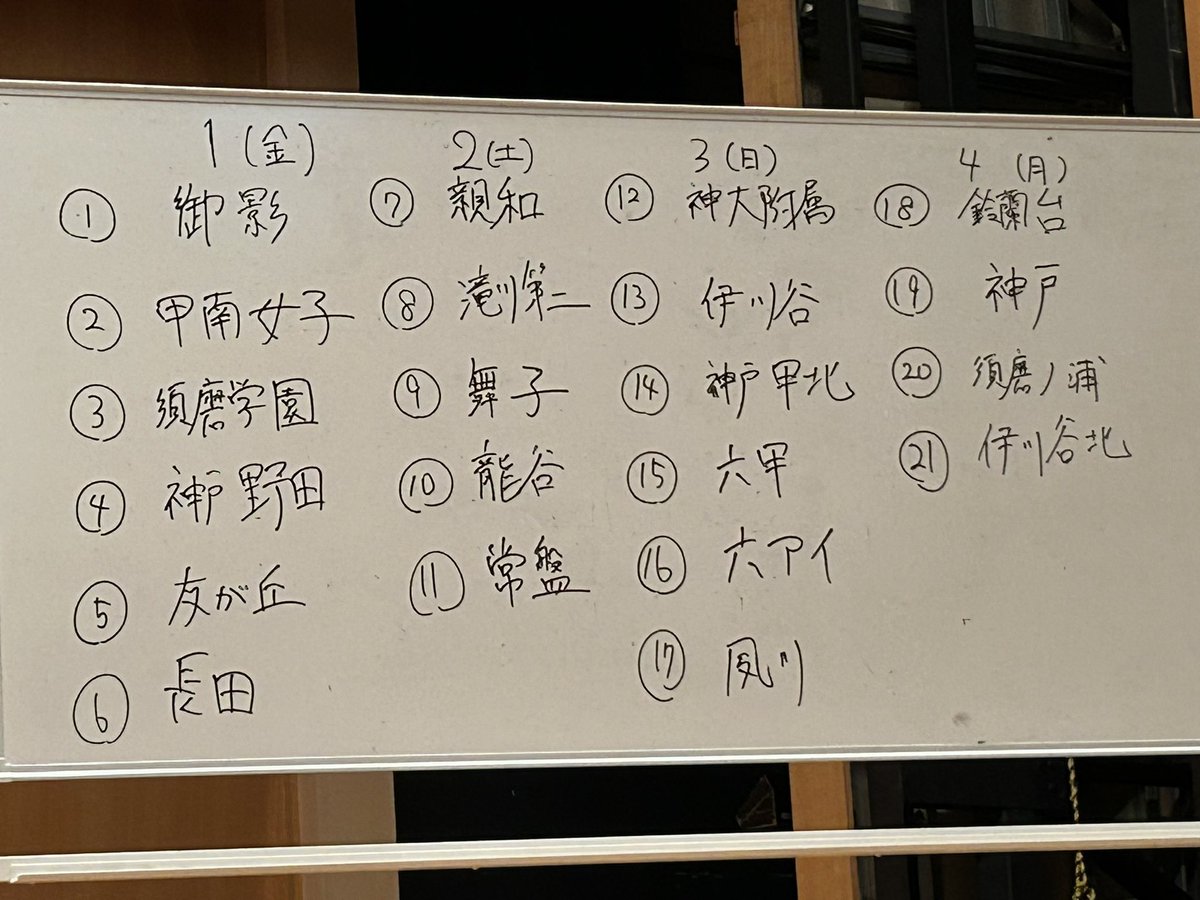 1(金)
① 御影
② 甲南女子
③ 須磨学園
④ 神戸野田
⑤ 友が丘
⑥ 長田
2(土)
⑦ 親和
⑧ 滝川第二
⑨ 舞子
⑩ 龍谷
⑪ 常盤
3(日)
⑫ 神大附属
⑬ 伊川谷
⑭ 神戸甲北
⑮ 六甲
⑯ 六アイ
⑰ 夙川
4(月)
⑱ 鈴蘭台
⑲ 神戸
⑳ 須磨ノ浦
㉑ 伊川谷北